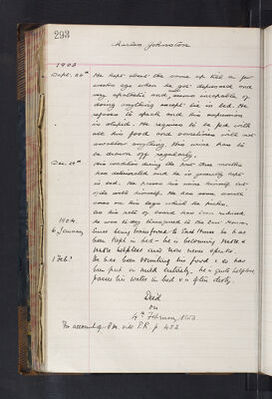 293
Charles Johnston
1903
Sept. 26th He kept about the same up till a few
weeks ago when he got depressed and
very apathetic and seems incapable of
doing anything except lie in bed. He
refuses to speak and his expression
is stupid. He requires to be fed with
all his food and sometimes will not
swallow anything. His urine has to
be drawn off regularly.
Dec. 29th His condition during the past three months
has deteriorated and he is generally kept
in bed. He passes his urine himself but
wets himself. He has some
sores on his legs which he picks.
has been reduced
he was to day transferred to the
1904.
6 January Since being transferred to East House he has
been kept in bed - he is becoming more &
more helpless and now never speaks
1 Feb. He has been vomiting his food & so has
been put on milk entirely. he is quite helpless
passes his water in bed & is often dirty.
Died
on
4th February
For account of P.M. vide P.R. p 483